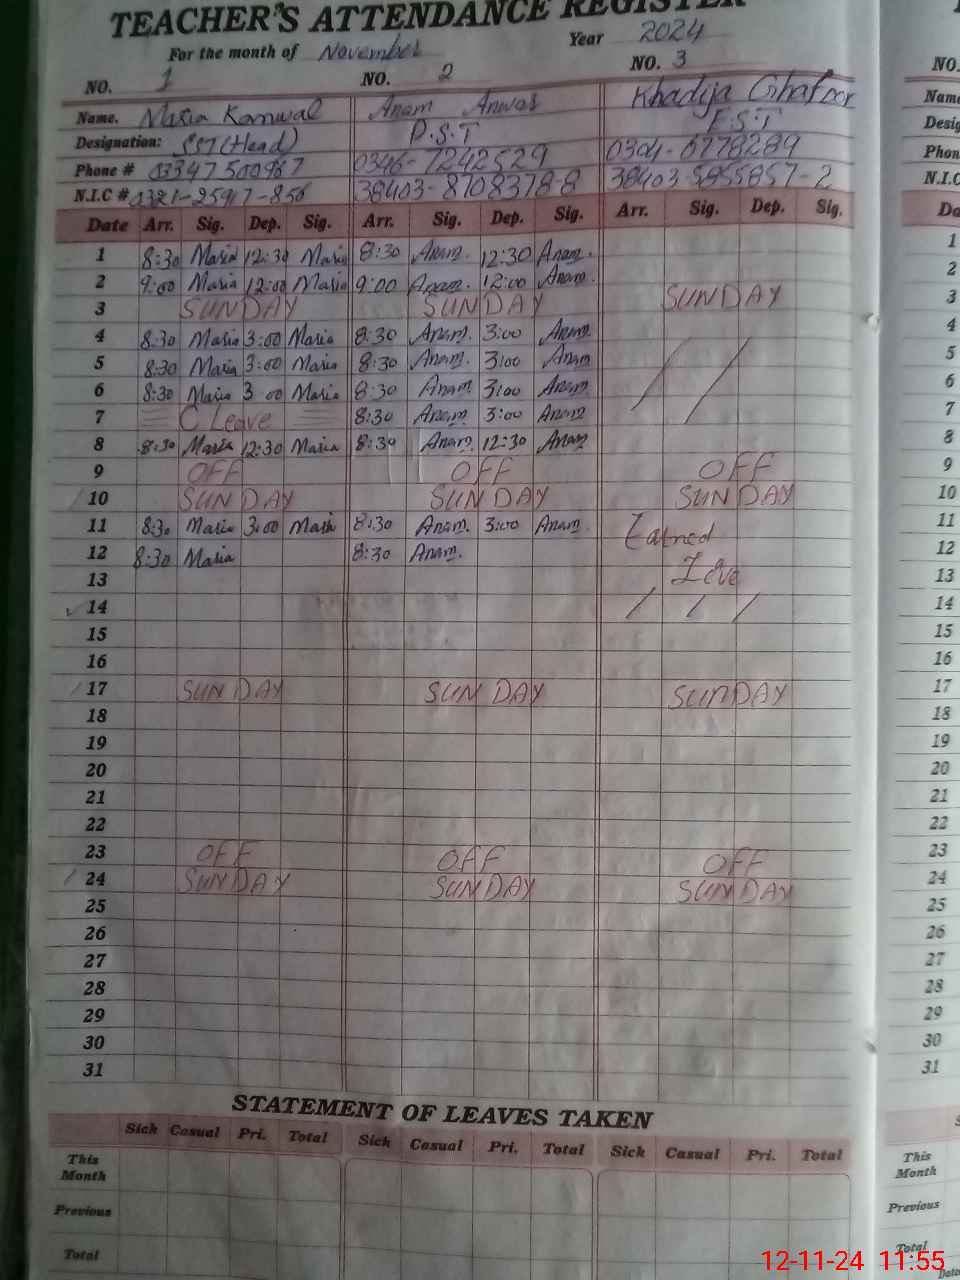 TEACHER'S ATTENDANCE REGISTER
For the month of November Year 2024
NO. 1 NO. 2 NO. 3 NO.
Name. Maria Kanwal Anam Anwar Khadija Ghafoor Name
Designation: SST (Head) P.S.T E.S.T Desig
Phone # 03347500967 0346-7242529 0304-6778289 Phon
N.I.C # 0321-25917-856 38403-8708378-8 38403-5855857-2 N.I.C
Date Arr. Sig. Dep. Sig. Arr. Sig. Dep. Sig. Arr. Sig. Dep. Sig. Da
1 8:30 Maria 12:30 Maria 8:30 Anam. 12:30 Anam. 1
2 9:00 Maria 12:00 Maria 9:00 Anam. 12:00 Anam. 2
3 SUNDAY SUNDAY SUNDAY 3
4 8:30 Maria 3:00 Maria 8:30 Anam. 3:00 Anam. 4
5 8:30 Maria 3:00 Maria 8:30 Anam. 3:00 Anam 5
6 8:30 Maria 3 00 Maria 8:30 Anam 3:00 Anam 6
7 C Leave 8:30 Anam 3:00 Anam 7
8 8:30 Maria 12:30 Maria 8:30 Anam 12:30 Anam 8
9 OFF OFF OFF 9
10 SUNDAY SUNDAY SUNDAY 10
11 8:30 Maria 3:00 Maria 8:30 Anam. 3:00 Anam. Earned 11
12 8:30 Maria 8:30 Anam. 12
13 13
14 14
15 15
16 16
17 SUNDAY SUNDAY SUNDAY 17
18 18
19 19
20 20
21 21
22 22
23 OFF OFF OFF 23
24 SUNDAY SUNDAY SUNDAY 24
25 25
26 26
27 27
28 28
29 29
30 30
31 31
STATEMENT OF LEAVES TAKEN
Sick Casual Pri. Total Sick Casual Pri. Total Sick Casual Pri. Total
This Month This Month
Previous Previous
Total Total
12-11-24 11:55